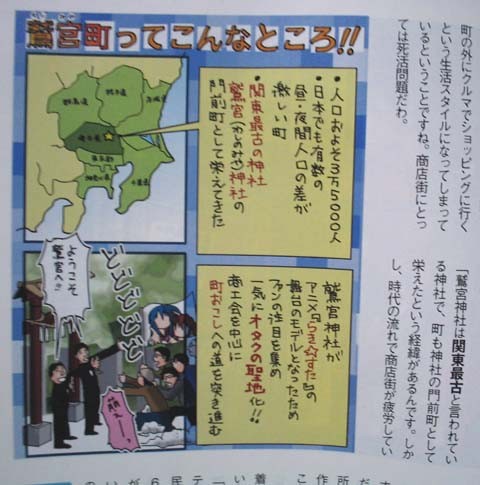 鷲宮町ってこんなところ!!
わし みや
・人口およそ3万5000人
・日本でも有数の
昼・夜間人口の差が
激しい町
・関東最古の神社
鷲宮(わしのみや)神社の
門前町として栄えてきた
群馬県
栃木県
茨城県
埼玉県
東京都
神奈川県
千葉県
鷲宮神社が
アニメ「らき☆すた」の
舞台のモデルとなったため
ファンの注目を集め
一気にオタクの聖地化!!
商工会を中心に
町おこしへの道を突き進む
ようこそ
鷲宮へ!!
どどどどど
町の外にクルマでショッピングに行く
という生活スタイルになってしまって
いるということですね。商店街にとっ
ては死活問題だわ。
「鷲宮神社は関東最古と言われてい
る神社で、町も神社の門前町として
栄えたという経緯があるんです。しか
し、時代の流れで商店街が疲労してい